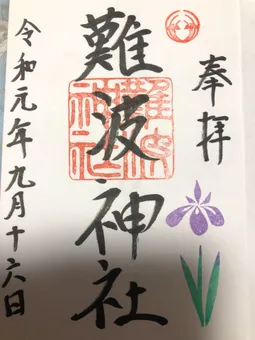 奉拝
難波神社
難波神社
令和元年九月十六日